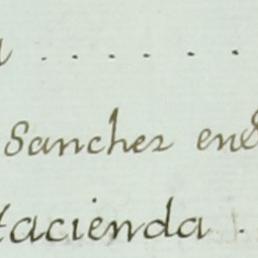 Sanchez en
Hacienda .